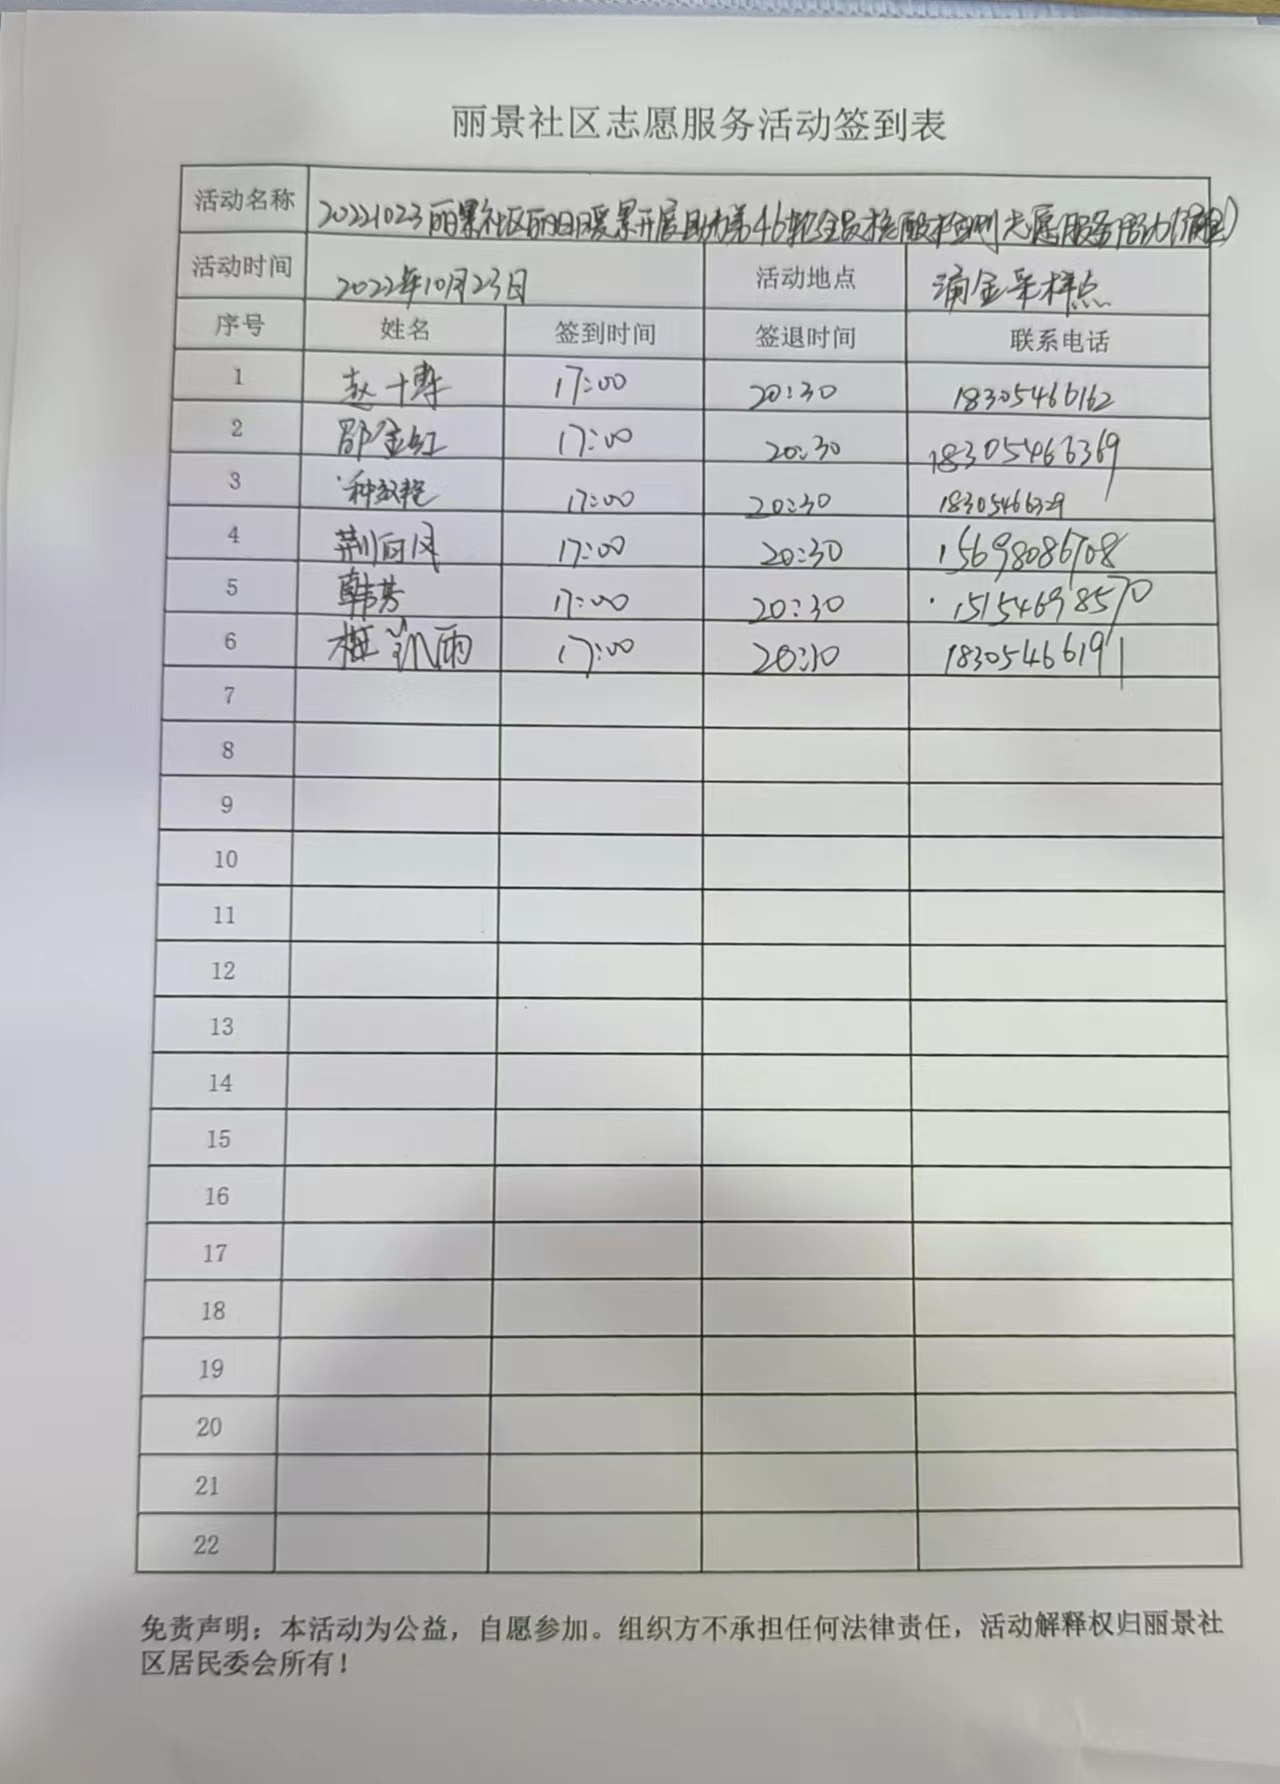 丽景社区志愿服务活动签到表
活动名称 20221023丽景社区丽日暖景开展助力第46轮全员核酸检测志愿服务活动
活动时间 2022年10月23日 活动地点 采样点
序号 姓名 签到时间 签退时间 联系电话
1 赵十博 17:00 20:30 18305466162
2 邵金红 17:00 20:30 18305466369
3 17:00 20:30 18305466329
4 荆向风 17:00 20:30 15698086708
5 韩芳 17:00 20:30 15154698570
6 17:00 20:30 18305466191
7
8
9
10
11
12
13
14
15
16
17
18
19
20
21
22
免责声明：本活动为公益，自愿参加。组织方不承担任何法律责任，活动解释权归丽景社
区居民委会所有！